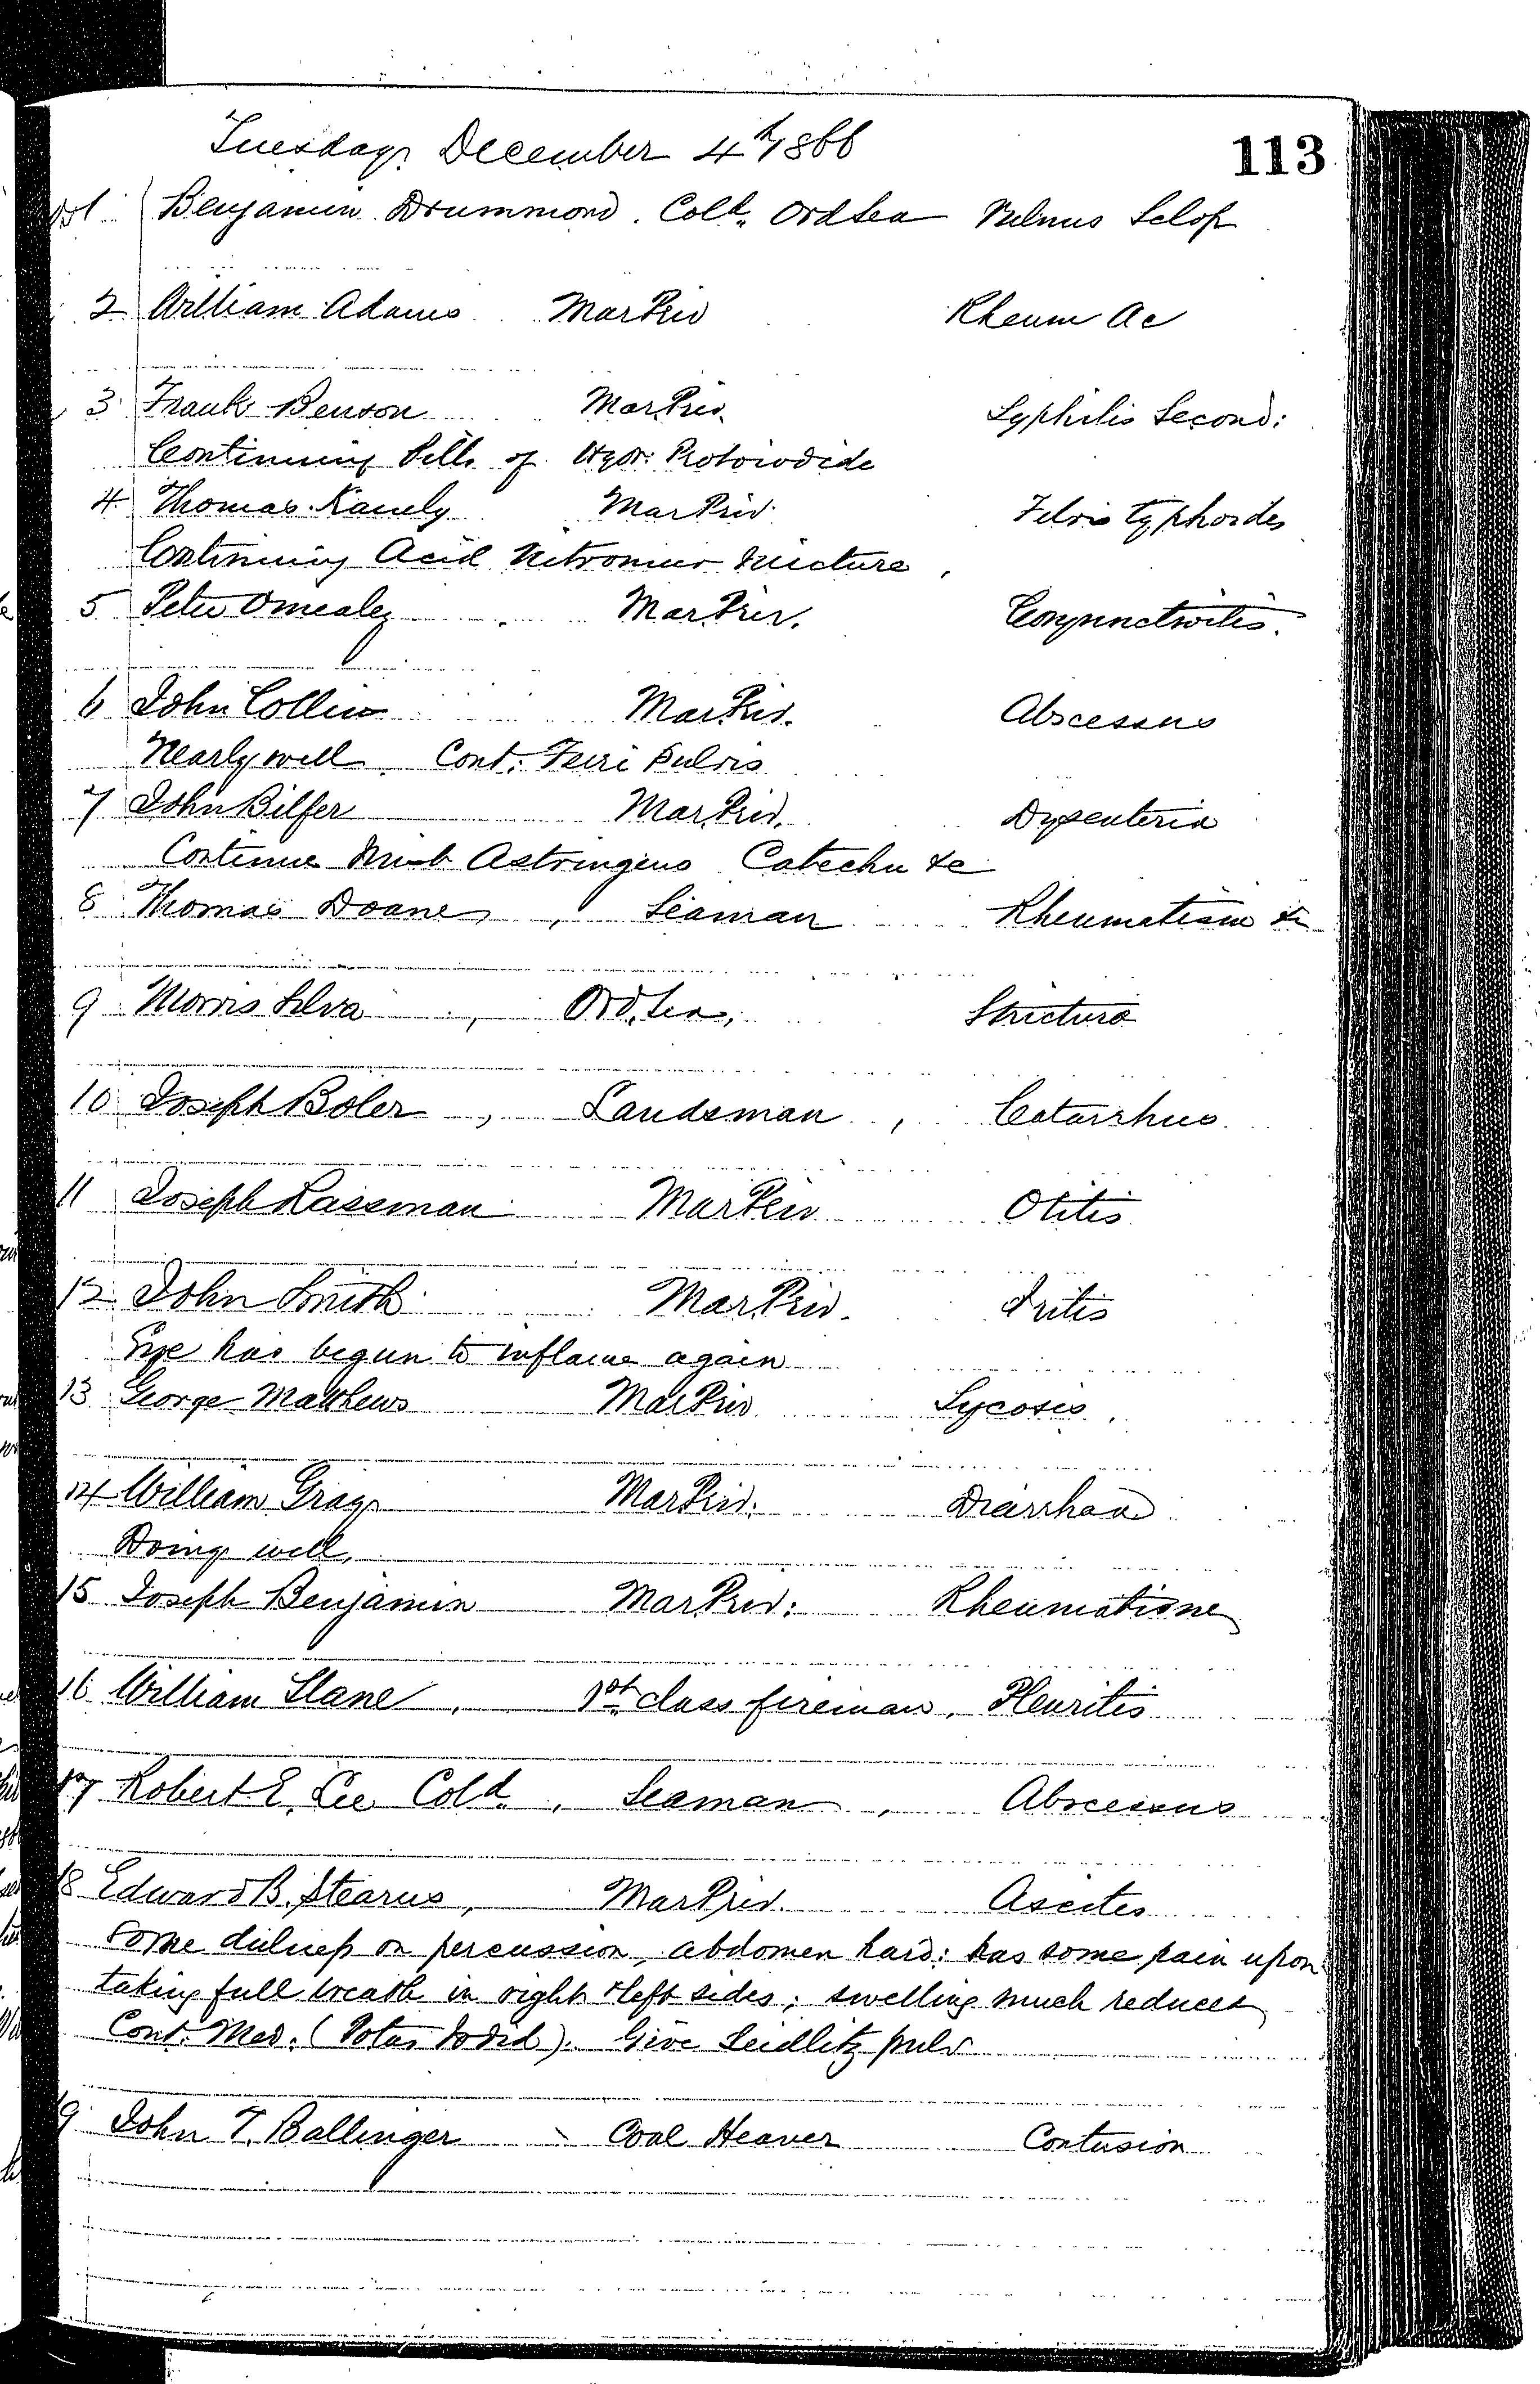 113
Tuesday December 4th 1866
1 Benjamin Drummond. Cold. Ord Sea Vulnus Sclop
2 William Adams Mar Priv Rheum Ac
3 Frank Benson Mar Priv. Syphilis Second:
Continuing Pills of Hydr: Protoiodide
4 Thomas Kanely Mar Priv. Febris typhoides
Continuing Acid Nitromur Mixture,
5 Peter Omealey Mar Priv. Conjunctivitis.
6 John Collins Mar Priv. Abscessus
Nearly well. Cont: Ferri Pulvis
7 John Bilfer Mar Priv. Dysenteria
Continue Mist Astringens Catechu &c
8 Thomas Doane, Seaman Rheumatism
9 Morris Silva, Ord. Sea, Strictura
10 Joseph Boler, Landsman, Catarrhus.
11 Joseph Rassman Mar Priv Otitis
12 John Smith Mar. Priv. Iritis
Eye has begun to inflame again
13 George Matthews Mar Priv Sycosis.
14 William Gray Mar Priv. Diarrhœa
Doing well,
15 Joseph Benjamin Mar Priv: Rheumatism
16 William Slane, 1st class fireman, Pleuritis
17 Robert E. Lee Cold., Seaman, Abscessus
18 Edward B. Stearns, Mar Priv. Ascites
Some dulness on percussion, abdomen hard: has some pain upon
taking full breath in right & left sides; swelling much reduced
Cont. Med. (Potas Iodid). Give Seidlitz pulv
19 John T. Ballinger Coal Heaver Contusion